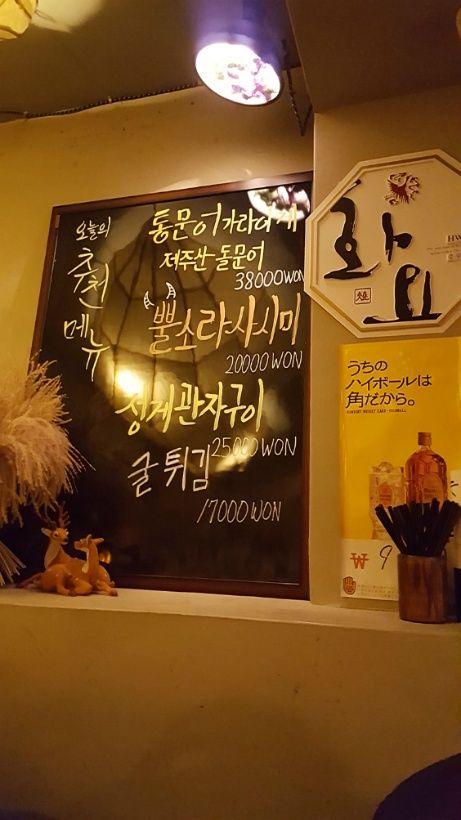 오늘의
추천
메뉴
통문어가라아게
제주산 돌문어
38000WON
뿔소라사시미
20000 WON
성게관자구이
25000 WON
굴 튀김
17000 WON
화요
HW
うちの
ハイボールは
角だから。
₩ 9